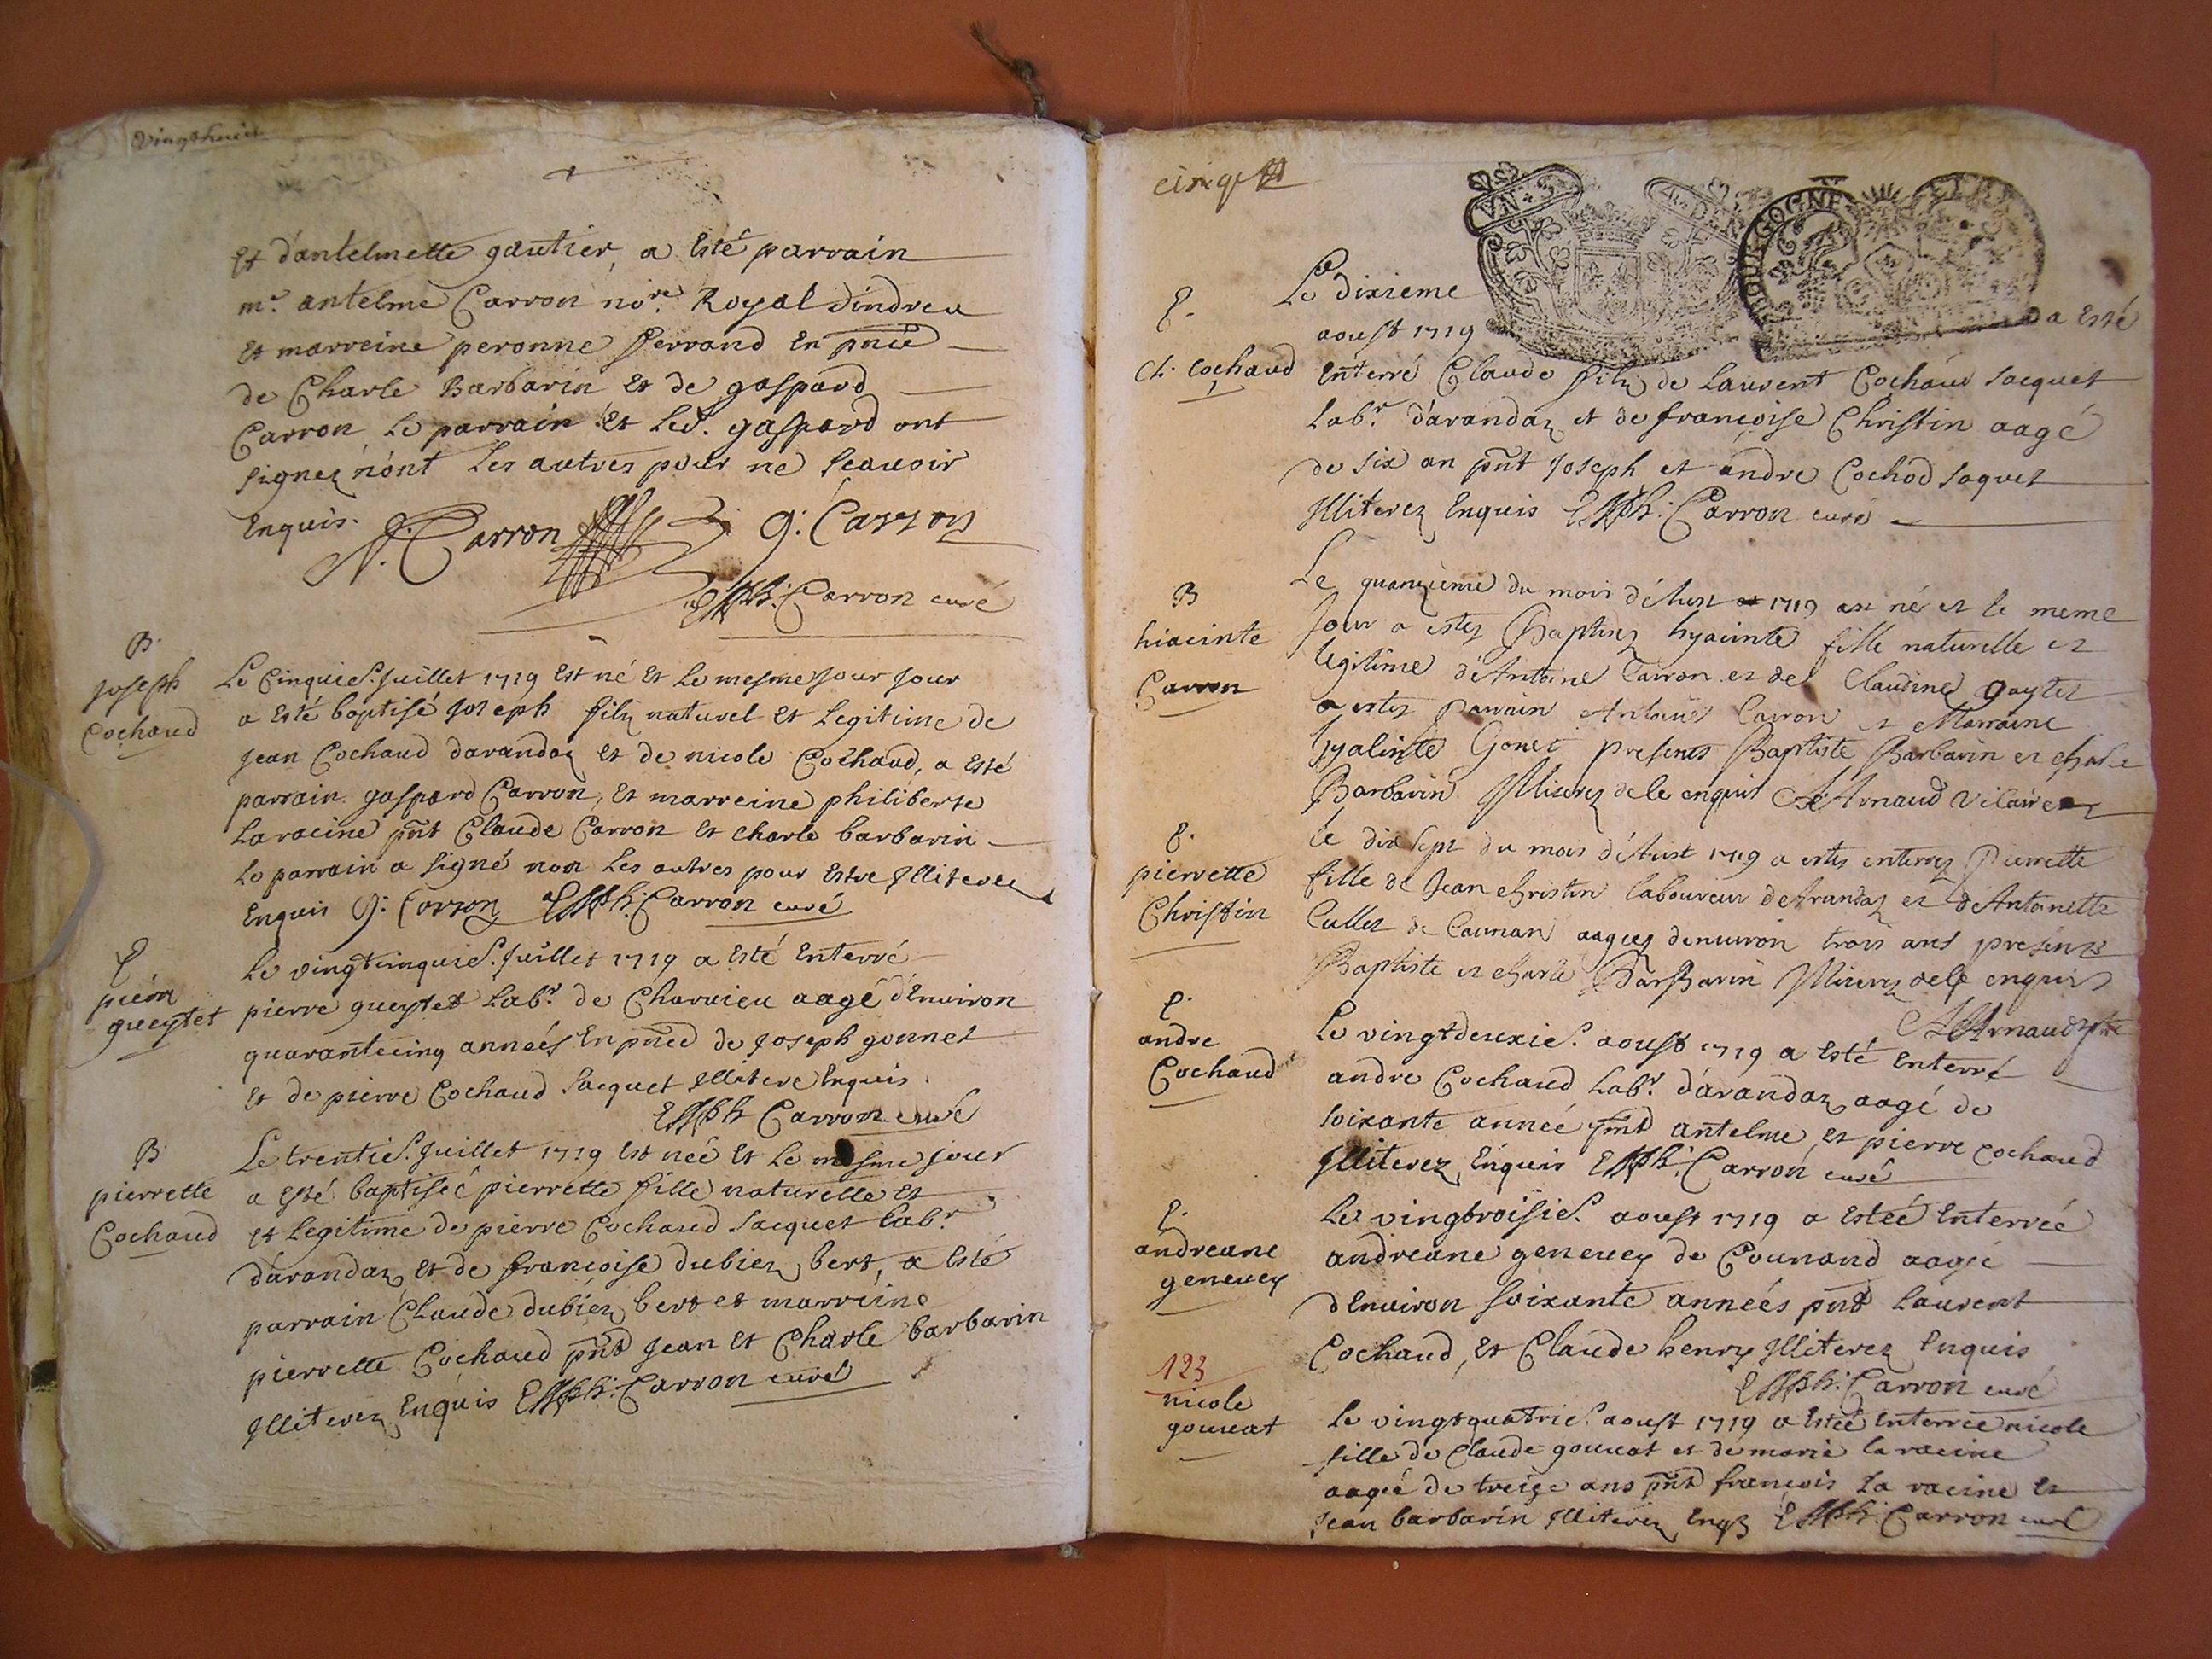 vingthuit
Et d'antelmette gautier, a Esté parrain
mr. antelme Carron nore. Royal d'indreu
Et marreine peronne ferrand En pnce
de Charle Barbarin Et de gaspard
Carron Le parrain Et Led. gaspard ont
signez n'ont Les autres pour ne scauoir
Enquis. A. Carron g: Carron
Carron curé
B.
Joseph
Cochaud
Le Cinquie. Juillet 1719 Est né Et Le mesme Jour Jour
a Esté baptisé Joseph filz naturel Et Legitime de
Jean Cochaud d'arandaz Et de nicole Cochaud, a Esté
parrain gaspard Carron, Et marreine philiberte
La racine pnt Claude Carron Et charle barbarin
Le parrain a signé non Les autres pour Estre Illiterez
Enquis G: Carron Carron curé
E
pierre
gueytet
Le vingtcinquie. Juillet 1719 a Esté Enterré
pierre gueytet Labr. de Charuieu aagé d'Enuiron
quarantecinq années En pnce de Joseph gonnet
Et de pierre Cochaud Jacquet Illitere Enquis
Carron curé
B
pierrette
Cochaud
Le trentie. Juillet 1719 Est neé Et Le mesme jour
a Esté baptiseé pierrette fille naturelle Et
et Legitime de pierre Cochaud Jacquet Labr.
d'arandaz Et de francoise dubiez bert, a Esté
parrain Claude dubiez bert et marreine
pierrette Cochaud pnt Jean Et Charle barbarin
Illiterez Enquis Carron curé
cinq
VN
DEN
BOURGOGNE ET
E.
Cl. Cochaud
Le dixieme
aoust 1719 a Esté
Enterré Claude filz de Laurent Cochaud Jacquet
Labr. d'arandaz et de francoise Christin aagé
de six an pnt Joseph et andre Cochod Jaquet
Illiterez Enquis Carron curé
B
hiacinte
Carron
Le quanzieme du mois d'Aust 1719 est né et le meme
Jour a estez Baptisez hyacinte fille naturelle et
legitime d'Antoine Carron et de Claudine Gaytet
a estez Parrain Antoine Carron et Marraine
hyalinte Gonet presents Baptiste Barbarin et charle
Barbarin Illiterez de le enquis Arnaud Vicaire
E.
pierrette
Christin
le dix sept du mois d'Aust 1719 a estez enterrez Pierrette
fille de Jean christin laboureur de Arandaz et d'Antoinette
Cullet de Counand aagez denuiron trois ans presents
Baptiste et charle Barbarin Illiterez de le enquis
Arnaud
E.
andre
Cochaud
Le vingtdeuxie. aoust 1719 a Esté Enterré
andre Cochaud Labr. d'arandaz aagé de
soixante année pnt antelme et pierre cochaud
Illiterez Enquis Carron curé
E.
andreane
geneuey
Le vingtroisie. aoust 1719 a Esteé Enterreé
andreane geneuey de Counand aageé
d'Enuiron soixante années pnt Laurent
Cochaud, Et Claude henry Illiterez Enquis
Carron curé
123
nicole
gouuat
Le vingtquatrie. aoust 1719 a Esteé Enterreé nicole
fille de Claude gouuat et de marie la racine
aageé de treize ans pnt francois La racine Et
Jean barbarin Illiterez Enqs Carron curé